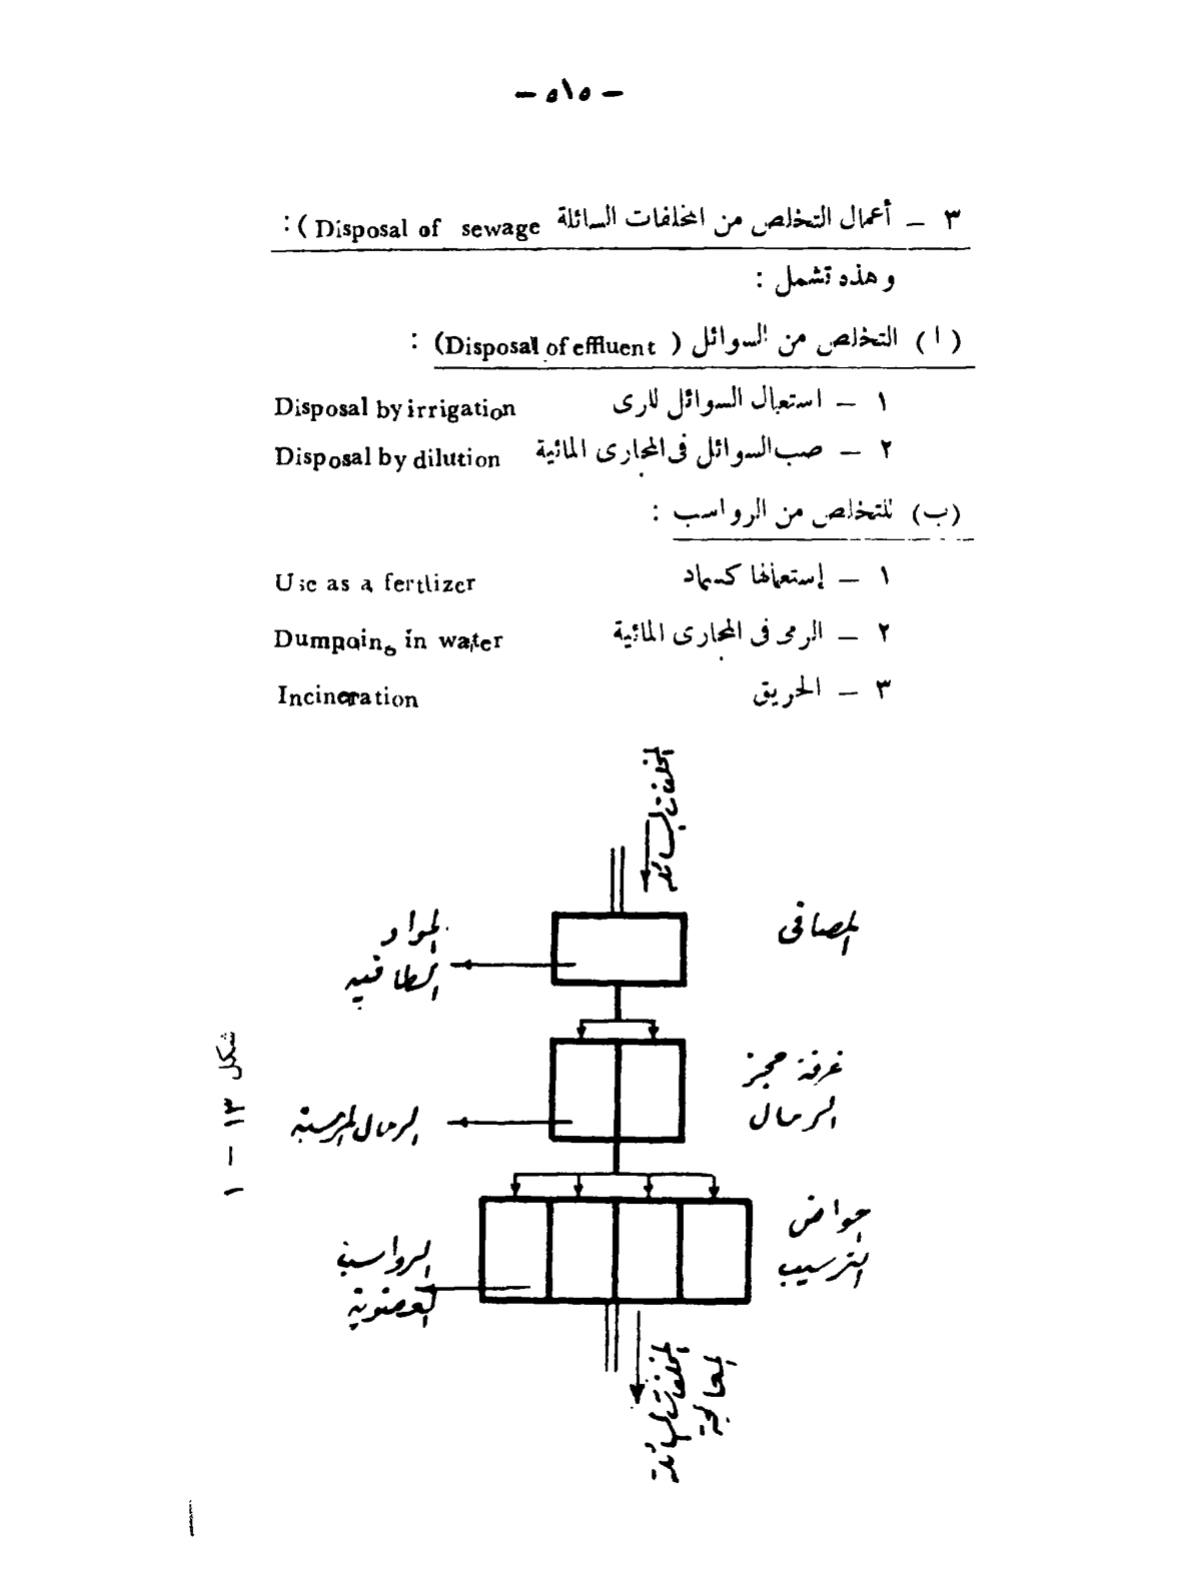 - ٥١٥ -
٣ - أعمال التخلص من المخلفات السائلة Disposal of sewage ):
وهذه تشمل :
( ا ) التخلص من السوائل ( Disposal of effluent) :
١ - استعمال السوائل للرى Disposal by irrigation
٢ - صب السوائل فى المجارى المائية Disposal by dilution
(ب) للتخلص من الرواسب :
١ - إستعمالها كسماد Use as a fertlizer
٢ - الرمى فى المجارى المائية Dumpoing in water
٣ - الحريق Incineration
المخلفات السائلة
المصافى
المواد
الطافيه
غرفة حجز
الرمال
الرمال المترسبة
حواض
الترسيب
الرواسب
العضوية
المخلفات السائلة
المعالجة
شكل ١٣ - ١